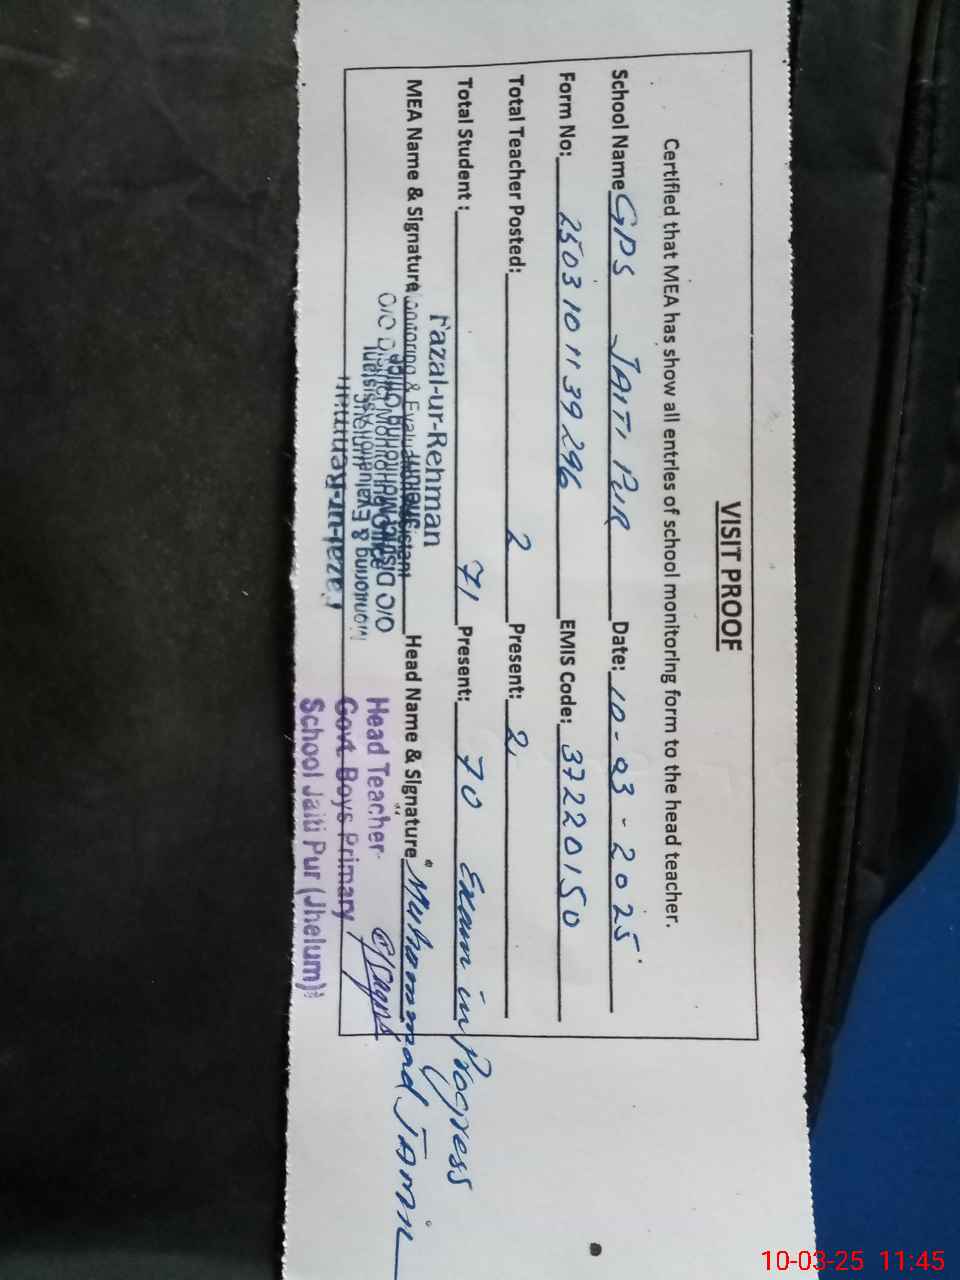 VISIT PROOF
Certified that MEA has show all entries of school monitoring form to the head teacher.
School Name GPS JAITI PUR Date: 10-03-2025
Form No: 2503101139296 EMIS Code: 37220150
Total Teacher Posted: 2 Present: 2
Total Student : 71 Present: 70 Exam in Progress
Fazal-ur-Rehman
MEA Name & Signature Monitoring & Evaluation Assistant Head Name & Signature Muhammad JAMIL
O/O District Monitoring Office
Fazal-ur-Rehman
Monitoring & Evaluation Assistant
O/O District Monitoring Office
Jhelum
Head Teacher
Govt Boys Primary
School Jaiti Pur (Jhelum)
10-03-25 11:45